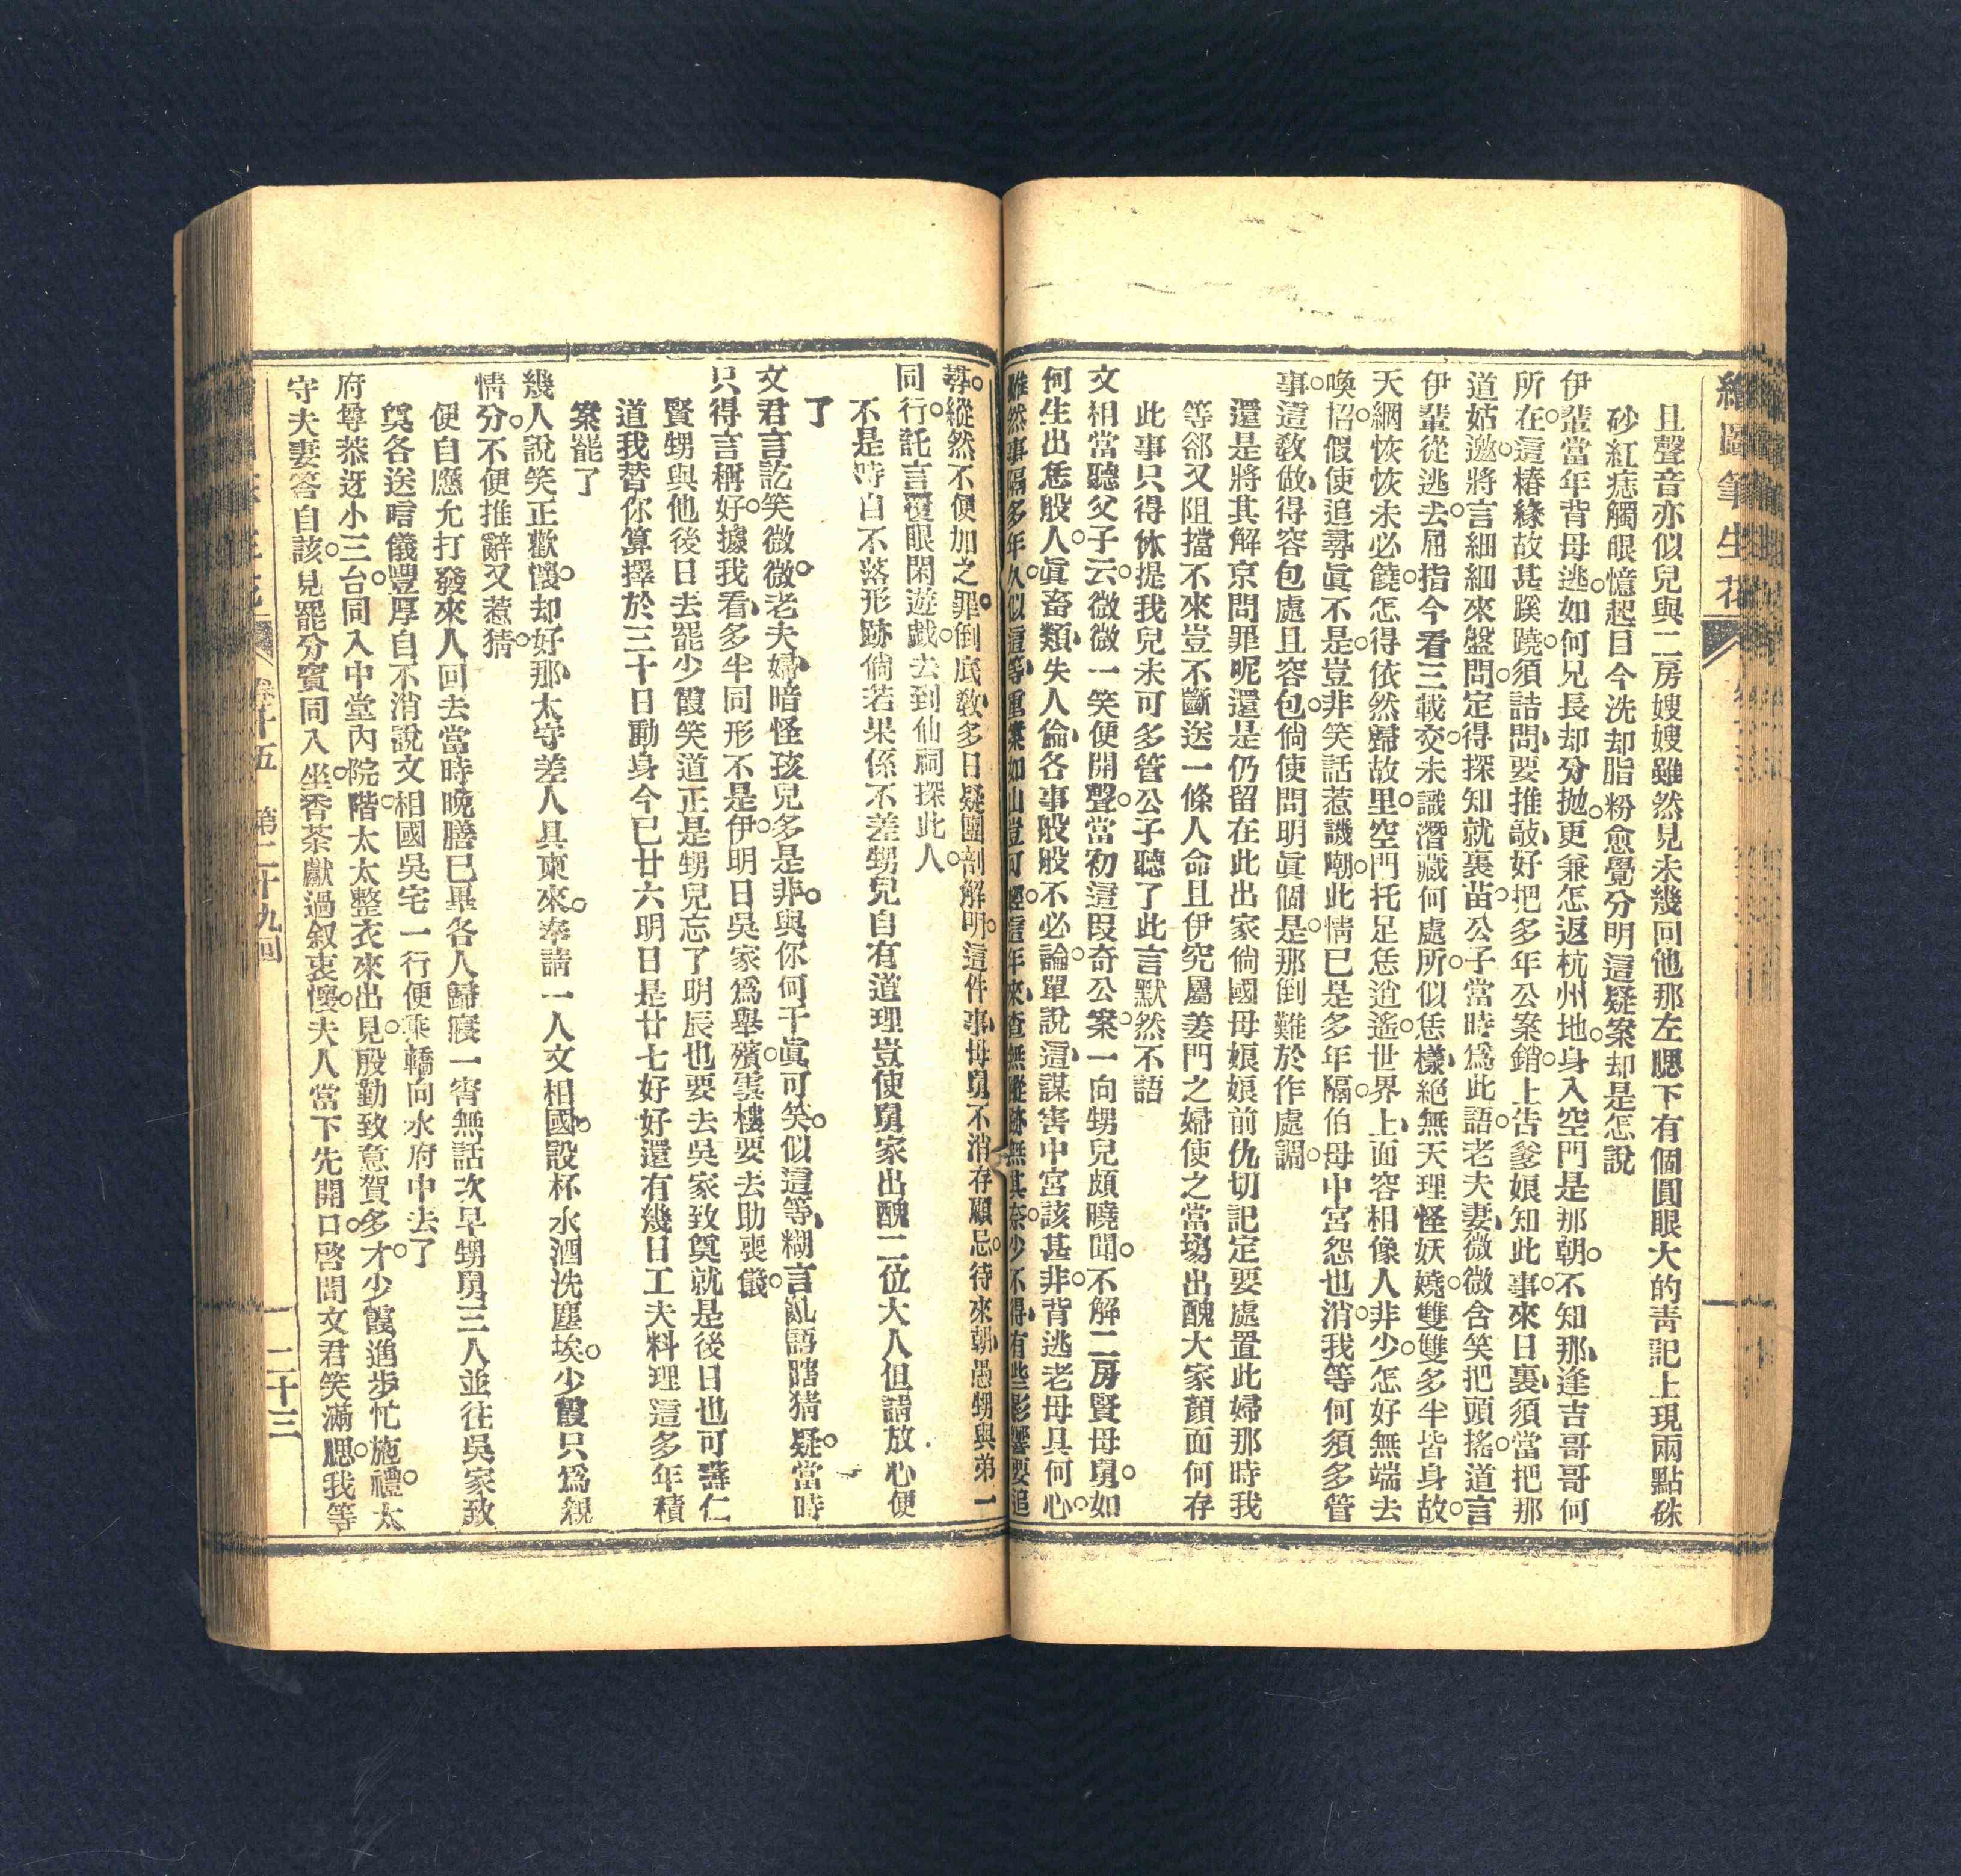 繪圖筆生花
且聲音亦似兒與二房嫂嫂雖然見未幾回他那左腮下有個圓眼大的靑記上現兩點硃
砂紅痣觸眼憶起目今洗却脂粉愈覺分明這疑案却是怎說
伊輩當年背母逃。如何兄長却分拋。更兼怎返杭州地。身入空門是那朝。不知那、逢吉哥哥何
所在。這樁緣故甚蹊蹺。須詰問、要推敲、好把多年公案銷。上告爹娘知此事。來日裏、須當把那
道姑邀。將言細細來盤問。定得探知就裏苗。公子當時爲此語。老夫妻、微微含笑把頭搖。道言
伊輩從逃去。屈指今看三載交。未識潛藏何處所。似恁樣、絕無天理怪妖嬈。雙雙多半皆身故。
天網恢恢未必饒。怎得依然歸故里。空門托足恁逍遙。世界上、面容相像人非少。怎好無端去
喚招。假使追尋眞不是。豈非笑話惹譏嘲。此情已是多年隔。伯母中宮怨也消。我等何須多管
事。這敎做、得容包處且容包。倘使問明眞個是。那倒難於作處調。
還是將其解京問罪呢還是仍留在此出家倘國母娘娘前仇切記定要處置此婦那時我
等郤又阻擋不來豈不斷送一條人命且伊究屬姜門之婦使之當塲出醜大家顏面何存
此事只得休提我兒未可多管公子聽了此言默然不語
文相當聽父子云。微微一笑便開聲。當初這段奇公案。一向甥兒頗曉聞。不解二房賢母舅。如
何生出恁般人。眞畜類、失人倫、各事般般不必論。單說這、謀害中宮該甚非。背逃老母具何心。
雖然事隔多年久。似這等、重案如山豈可輕。這年來、查無蹤跡無其奈。少不得、有些影響要追
尋。縱然不便加之罪。倒底敎、多日疑團剖解明。這件事、母舅不消存顧忌。待來朝、愚甥與弟一
同行。託言覆眼閑遊戱。去到仙祠探此人。
不是時自不落形跡倘若果係不差甥兒自有道理豈使舅家出醜二位大人但請放心便
了
文君言訖笑微微。老夫婦、暗怪孩兒多是非。與你何干眞可笑。似這等、糊言亂語瞎猜疑。當時
只得言稱好。據我看、多半同形不是伊。明日吳家爲舉殯。雲樓要去助喪儀。
賢甥與他後日去罷少霞笑道正是甥兒忘了明辰也要去吳家致奠就是後日也可壽仁
道我替你算擇於三十日動身今已廿六明日是廿七好好還有幾日工夫料理這多年積
案罷了
幾人說笑正歡懷。却好那、太守差人具柬來。奉請一人文相國。設杯水酒洗塵埃。少霞只爲親
情分。不便推辭又惹猜。
便自應允打發來人回去當時晚膳已畢各人歸寢一宵無話次早甥舅三人並往吳家致
奠各送唁儀豐厚自不消說文相國吳宅一行便乘轎向水府中去了
府尊恭迓小三台。同入中堂內院階。太太整衣來出見。殷勤致意賀多才。少霞進步忙施禮。太
守夫妻答自該。見罷分賓同入坐。香茶獻過叙衷懷。夫人當下先開口。啓問文君笑滿腮。我等
卷十五 第二十九回 二十三